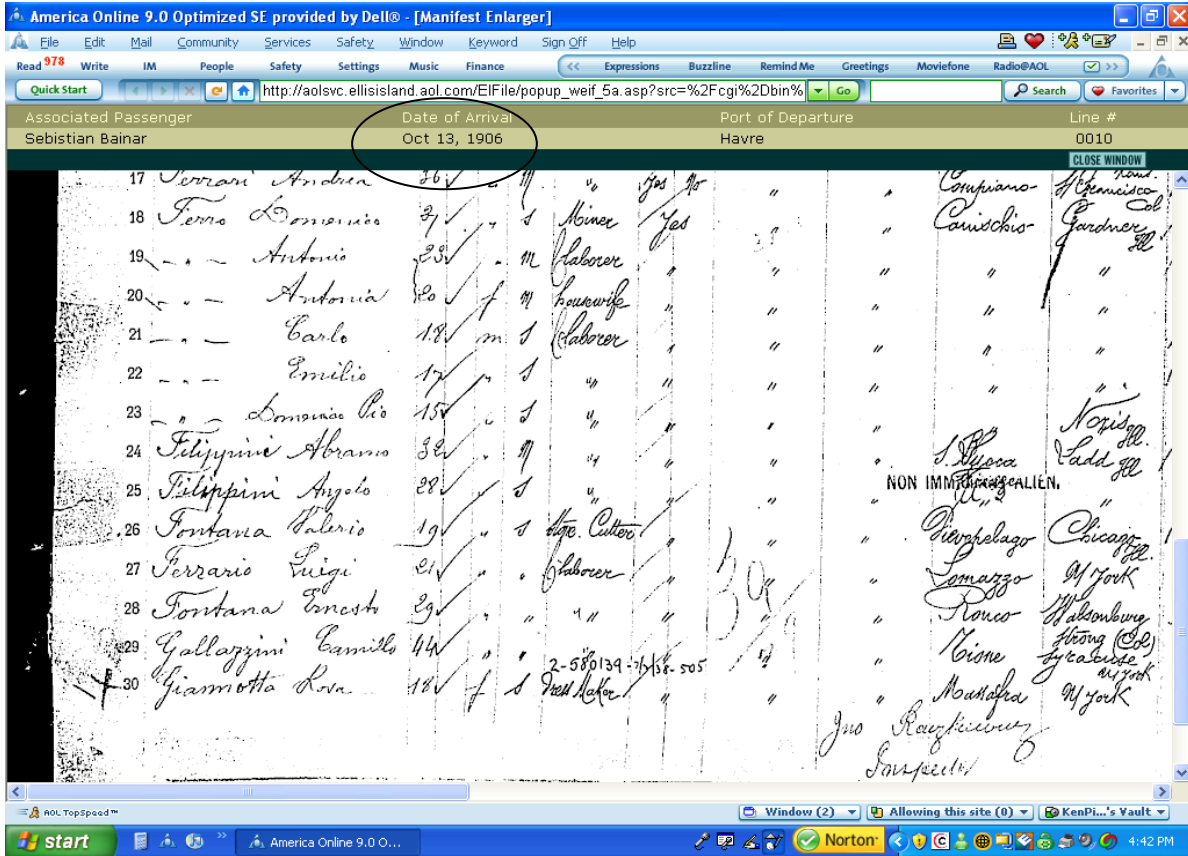 America Online 9.0 Optimized SE provided by Dell® - [Manifest Enlarger]
File Edit Mail Community Services Safety Window Keyword Sign Off Help
Read 978 Write IM People Safety Settings Music Finance << Expressions Buzzline Remind Me Greetings Moviefone Radio@AOL >>
Quick Start http://aolsvc.ellisisland.aol.com/EIFile/popup_weif_5a.asp?src=%2Fcgi%2Dbin% Go Search Favorites
Associated Passenger Date of Arrival Port of Departure Line #
Sebistian Bainar Oct 13, 1906 Havre 0010
CLOSE WINDOW
17 Ferrari Andrea 36 " M " Yes No " " Compiano
18 Ferro Domenico " S Miner Yes " Gardner Ill
19 - - - Antonio 23 " M Laborer " " " " "
20 - " - Antonia 20 f M housewife " " " " "
21 - " - Carlo 18 m S Laborer " " " "
22 - " - Emilio 17 " S " " " " " "
23 - " - Domenico Pio 15 " S " " "
24 Filippini Abramo 32 " M " " " Ladd Ill
25 Filippini Angelo 28 " S " " " NON IMMIGRANT ALIEN.
26 Fontana Valerio 19 " S Cutter " " " Chicago Ill.
27 Ferrario Luigi 21 " " Laborer " " " Lomazzo N York
28 Fontana Ernesto 29 " " " " " " Ronco
29 Gallazzini Camillo 44 " " " " Tione Syracuse New York
2-580139-
30 Giannotta Rosa 18 f S Dress Maker " " " Massafra N York
AOL TopSpeed™ Window (2) Allowing this site (0) KenPi...'s Vault
start America Online 9.0 O... Norton 4:42 PM